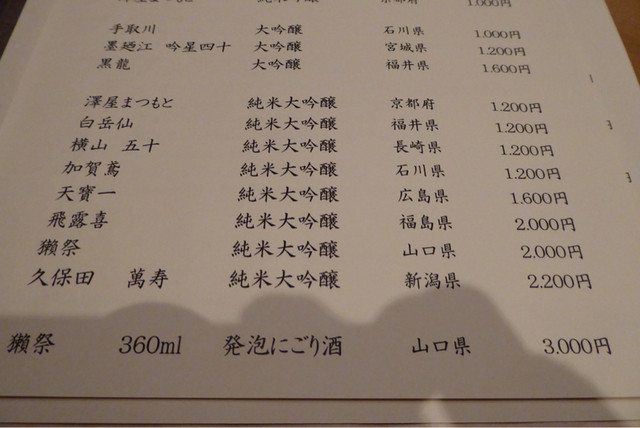 澤屋まつもと 純米大吟醸 京都府 1.000円
手取川 大吟醸 石川県 1.000円
墨廼江 吟星四十 大吟醸 宮城県 1.200円
黒龍 大吟醸 福井県 1.600円
澤屋まつもと 純米大吟醸 京都府 1.200円
白岳仙 純米大吟醸 福井県 1.200円
横山 五十 純米大吟醸 長崎県 1.200円
加賀鳶 純米大吟醸 石川県 1.200円
天寶一 純米大吟醸 広島県 1.600円
飛露喜 純米大吟醸 福島県 2.000円
獺祭 純米大吟醸 山口県 2.000円
久保田 萬寿 純米大吟醸 新潟県 2.200円
獺祭 360ml 発泡にごり酒 山口県 3.000円